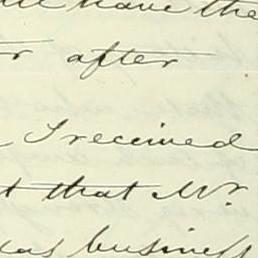 have the
after
I received
that Mr.
business